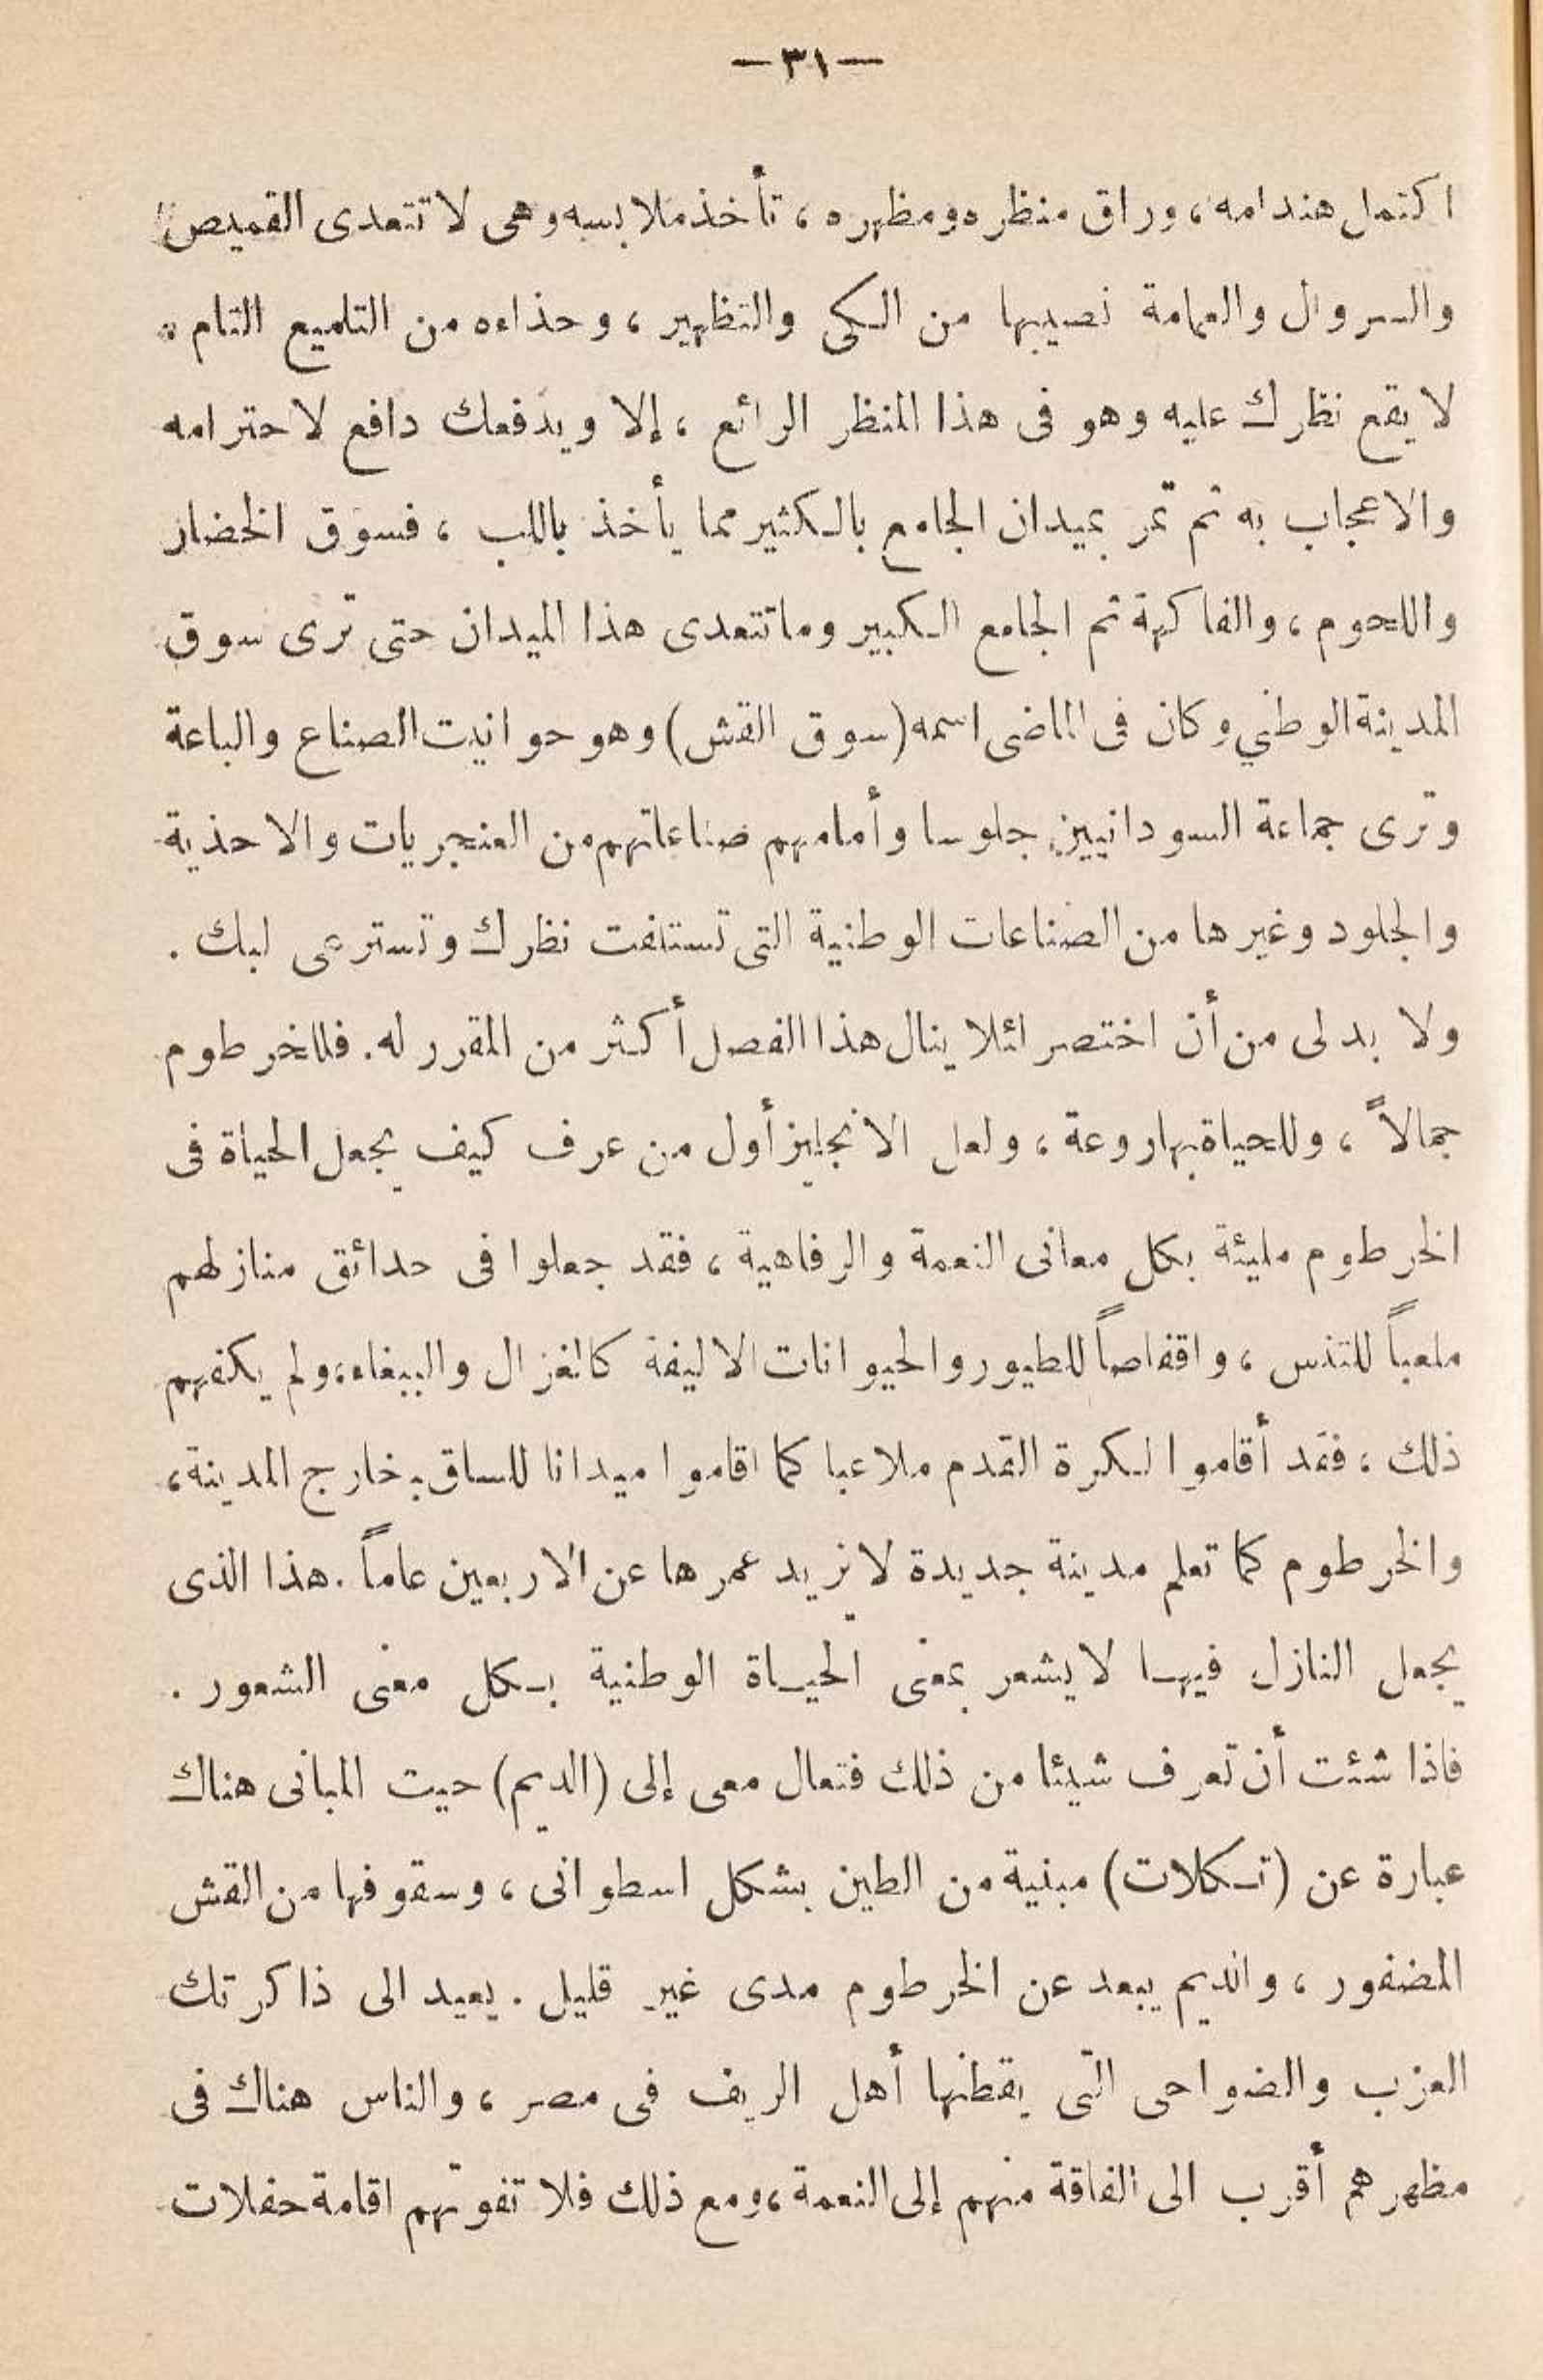 —٣١—
اكتمل هندامه، وراق منظره ومظهره، تأخذ ملابسه وهى لا تتعدى القميص
والسروال والعمامة نصيبها من الكى والتظهير، وحذاءه من التلميع التام.
لا يقع نظرك عليه وهو فى هذا المنظر الرائع، إلا ويدفعك دافع لاحترامه
والاعجاب به ثم تمر بميدان الجامع بالكثير مما يأخذ باللب، فسوق الخضار
واللحوم، والفاكهة ثم الجامع الكبير وما تتعدى هذا الميدان حتى ترى سوق
المدينة الوطني وكان فى الماضى اسمه (سوق القش) وهو حوانيت الصناع والباعة
وترى جماعة السودانيين جلوسا وأمامهم صناعاتهم من العنجريات والاحذية
والجلود وغيرها من الصناعات الوطنية التى تستلفت نظرك وتسترعى لبك.
ولا بد لى من أن اختصر لئلا ينال هذا الفصل أكثر من المقرر له. فللخرطوم
جمالاً، وللحياة بها روعة، ولعل الانجليز أول من عرف كيف يجعل الحياة فى
الخرطوم مليئة بكل معانى النعمة والرفاهية، فقد جعلوا فى حدائق منازلهم
ملعباً للتنس، واقفاصاً للطيور والحيوانات الاليفة كالغزال والببغاء، ولم يكفهم
ذلك، فقد أقاموا لكرة القدم ملاعبا كما اقاموا ميدانا للساق بخارج المدينة،
والخرطوم كما تعلم مدينة جديدة لا يزيد عمرها عن الاربعين عاماً. هذا الذى
يجعل النازل فيها لا يشعر بمعنى الحياة الوطنية بكل معنى الشعور.
فاذا شئت أن تعرف شيئا من ذلك فتعال معى إلى (الديم) حيت المبانى هناك
عبارة عن (تكلات) مبنية من الطين بشكل اسطوانى، وسقوفها من القش
المضفور، والديم يبعد عن الخرطوم مدى غير قليل. يعيد الى ذاكرتك
العزب والضواحى التى يقطنها أهل الريف فى مصر، والناس هناك فى
مظهرهم أقرب الى الفاقة منهم إلى النعمة، ومع ذلك فلا تفوتهم اقامة حفلات